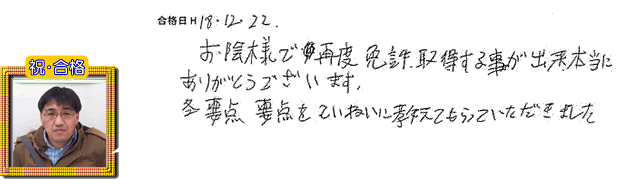 合格日 H 18.12.22.
お陰様で再度 免許 取得する事が出来本当に
ありがとうございます。
各要点 要点をていねいに教えてもらっていただきました
祝・合格